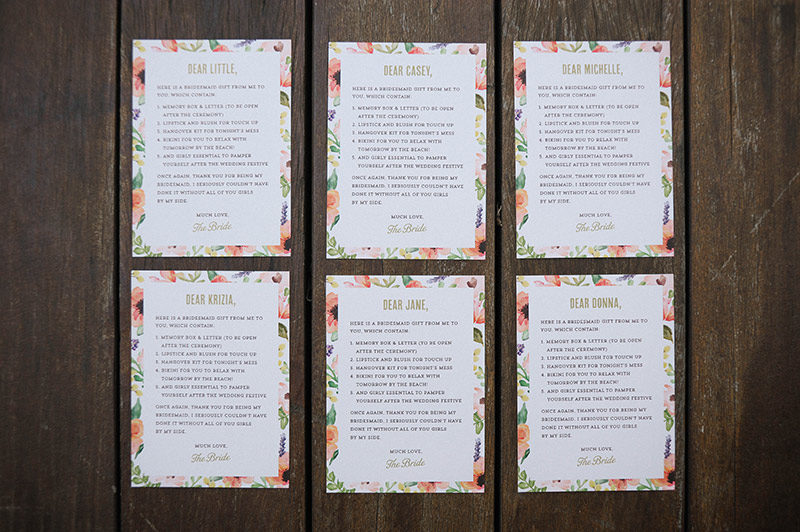 DEAR LITTLE,
HERE IS A BRIDESMAID GIFT FROM ME TO
YOU, WHICH CONTAIN:
1. MEMORY BOX & LETTER (TO BE OPEN
AFTER THE CEREMONY)
2. LIPSTICK AND BLUSH FOR TOUCH UP
3. HANGOVER KIT FOR TONIGHT'S MESS
4. BIKINI FOR YOU TO RELAX WITH
TOMORROW BY THE BEACH!
5. AND GIRLY ESSENTIAL TO PAMPER
YOURSELF AFTER THE WEDDING FESTIVE
ONCE AGAIN, THANK YOU FOR BEING MY
BRIDESMAID, I SERIOUSLY COULDN'T HAVE
DONE IT WITHOUT ALL OF YOU GIRLS
BY MY SIDE.
MUCH LOVE,
The Bride
DEAR CASEY,
HERE IS A BRIDESMAID GIFT FROM ME TO
YOU, WHICH CONTAIN:
1. MEMORY BOX & LETTER (TO BE OPEN
AFTER THE CEREMONY)
2. LIPSTICK AND BLUSH FOR TOUCH UP
3. HANGOVER KIT FOR TONIGHT'S MESS
4. BIKINI FOR YOU TO RELAX WITH
TOMORROW BY THE BEACH!
5. AND GIRLY ESSENTIAL TO PAMPER
YOURSELF AFTER THE WEDDING FESTIVE
ONCE AGAIN, THANK YOU FOR BEING MY
BRIDESMAID, I SERIOUSLY COULDN'T HAVE
DONE IT WITHOUT ALL OF YOU GIRLS
BY MY SIDE.
MUCH LOVE,
The Bride
DEAR MICHELLE,
HERE IS A BRIDESMAID GIFT FROM ME TO
YOU, WHICH CONTAIN:
1. MEMORY BOX & LETTER (TO BE OPEN
AFTER THE CEREMONY)
2. LIPSTICK AND BLUSH FOR TOUCH UP
3. HANGOVER KIT FOR TONIGHT'S MESS
4. BIKINI FOR YOU TO RELAX WITH
TOMORROW BY THE BEACH!
5. AND GIRLY ESSENTIAL TO PAMPER
YOURSELF AFTER THE WEDDING FESTIVE
ONCE AGAIN, THANK YOU FOR BEING MY
BRIDESMAID, I SERIOUSLY COULDN'T HAVE
DONE IT WITHOUT ALL OF YOU GIRLS
BY MY SIDE.
MUCH LOVE,
The Bride
DEAR KRIZIA,
HERE IS A BRIDESMAID GIFT FROM ME TO
YOU, WHICH CONTAIN:
1. MEMORY BOX & LETTER (TO BE OPEN
AFTER THE CEREMONY)
2. LIPSTICK AND BLUSH FOR TOUCH UP
3. HANGOVER KIT FOR TONIGHT'S MESS
4. BIKINI FOR YOU TO RELAX WITH
TOMORROW BY THE BEACH!
5. AND GIRLY ESSENTIAL TO PAMPER
YOURSELF AFTER THE WEDDING FESTIVE
ONCE AGAIN, THANK YOU FOR BEING MY
BRIDESMAID, I SERIOUSLY COULDN'T HAVE
DONE IT WITHOUT ALL OF YOU GIRLS
BY MY SIDE.
MUCH LOVE,
The Bride
DEAR JANE,
HERE IS A BRIDESMAID GIFT FROM ME TO
YOU, WHICH CONTAIN:
1. MEMORY BOX & LETTER (TO BE OPEN
AFTER THE CEREMONY)
2. LIPSTICK AND BLUSH FOR TOUCH UP
3. HANGOVER KIT FOR TONIGHT'S MESS
4. BIKINI FOR YOU TO RELAX WITH
TOMORROW BY THE BEACH!
5. AND GIRLY ESSENTIAL TO PAMPER
YOURSELF AFTER THE WEDDING FESTIVE
ONCE AGAIN, THANK YOU FOR BEING MY
BRIDESMAID, I SERIOUSLY COULDN'T HAVE
DONE IT WITHOUT ALL OF YOU GIRLS
BY MY SIDE.
MUCH LOVE,
The Bride
DEAR DONNA,
HERE IS A BRIDESMAID GIFT FROM ME TO
YOU, WHICH CONTAIN:
1. MEMORY BOX & LETTER (TO BE OPEN
AFTER THE CEREMONY)
2. LIPSTICK AND BLUSH FOR TOUCH UP
3. HANGOVER KIT FOR TONIGHT'S MESS
4. BIKINI FOR YOU TO RELAX WITH
TOMORROW BY THE BEACH!
5. AND GIRLY ESSENTIAL TO PAMPER
YOURSELF AFTER THE WEDDING FESTIVE
ONCE AGAIN, THANK YOU FOR BEING MY
BRIDESMAID, I SERIOUSLY COULDN'T HAVE
DONE IT WITHOUT ALL OF YOU GIRLS
BY MY SIDE.
MUCH LOVE,
The Bride